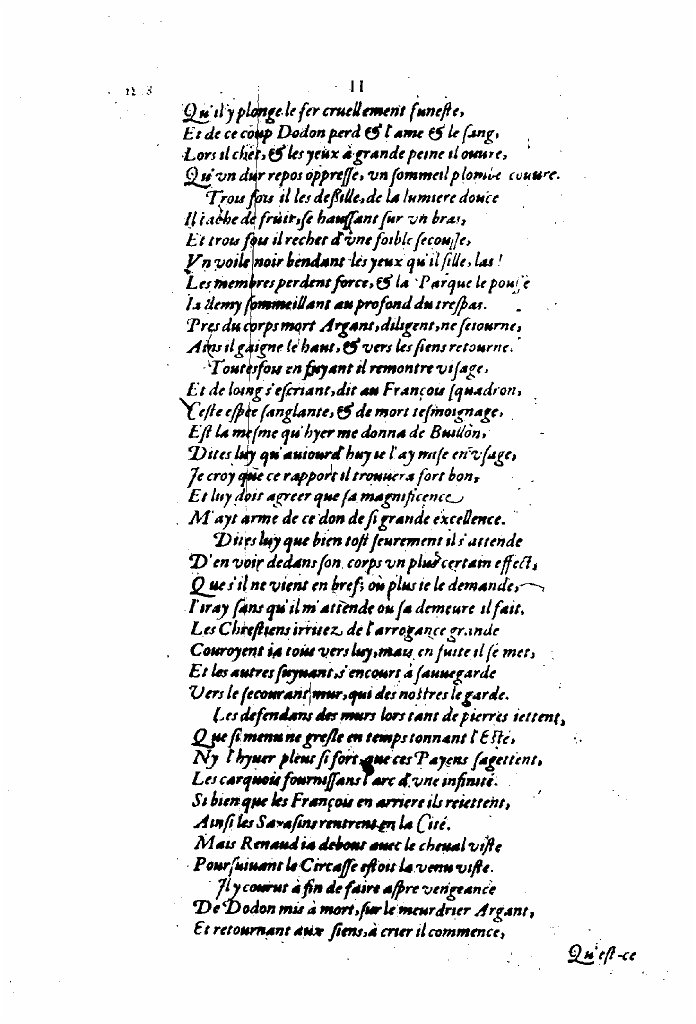 11
Qu'il y plonge le fer cruellement funeſte,
Et de ce coup Dodon perd & l'ame & le ſang,
Lors il chet, & les yeux à grande peine il ouure,
Qu'vn dur repos oppreſſe, vn ſommeil plombé couure.
Trois fois il les deſſille, de la lumiere douce
Il tache de fruir, ſe hauſſant ſur vn bras,
Et trois fois il rechet d'vne foible ſecouſſe,
Vn voile noir bendant les yeux qu'il ſille, las!
Les membres perdent force, & la Parque le pouſſe
Ia demy ſommeillant au profond du treſpas.
Pres du corps mort Argant, diligent, ne ſeiourne,
Ains il gaigne le haut, & vers les ſiens retourne.
Toutesfois en fuyant il remontre viſage,
Et de loing s'eſcriant, dit au François ſquadron,
Ceſte eſpée ſanglante, & de mort teſmoignage,
Eſt la meſme qu'hyer me donna de Buillon,
Dites luy qu'auiourd'huy ie l'ay miſe en vſage,
Ie croy que ce rapport il trouuera fort bon,
Et luy doit agreer que ſa magnificence
M'ayt armé de ce don de ſi grande excellence.
Dites luy que bien toſt ſeurement il s'attende
D'en voir dedans ſon corps vn plus certain effect,
Que s'il ne vient en bref, où plus ie le demande,
I'iray ſans qu'il m'attende où ſa demeure il fait,
Les Chreſtiens irritez de l'arrogance grande
Couroyent ia tous vers luy, mais en fuite il ſe met,
Et les autres fuyant, s'encourt à ſauuegarde
Vers le ſecourant mur, qui des noſtres le garde.
Les defendans des murs lors tant de pierres iettent,
Que ſi menu ne greſle en temps tonnant l'Eſté,
Ny l'hyuer pleut ſi fort, que ces Payens ſagettent,
Les carquois fourniſſans l'arc d'vne infinité.
Si bien que les François en arriere ils reiettent,
Ainſi les Saraſins rentrent en la Cité.
Mais Renaud ia debout auec le cheual viſte
Pourſuiuant le Circaſſe eſtoit la venu viſte.
Il y courut à fin de faire aſpre vengeance
De Dodon mis à mort, ſur le meurdrier Argant,
Et retournant aux ſiens, à crier il commence,
Qu'eſt-ce